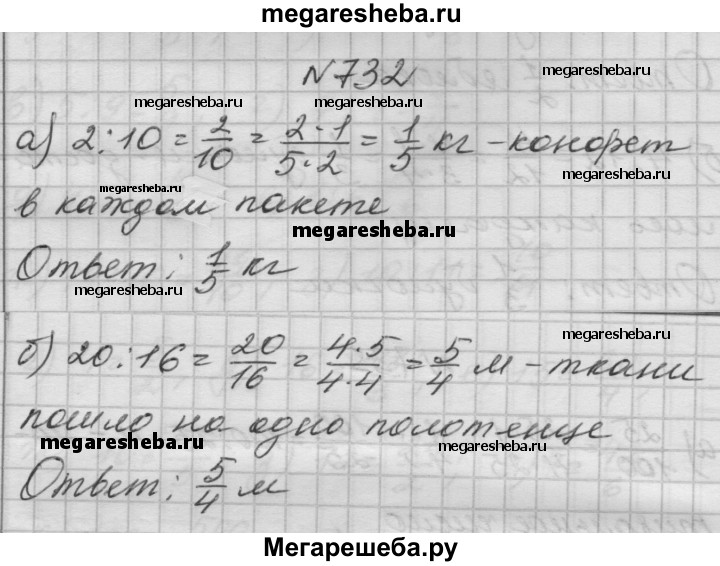 megaresheba.ru
№732
megaresheba.ru
megaresheba.ru megaresheba.ru
а) 2:10 = 2/10 = 2·1/5·2 = 1/5 кг - конфет
megaresheba.ru megaresheba.ru
в каждом пакете
megaresheba.ru
Ответ: 1/5 кг
megaresheba.ru
megaresheba.ru
б) 20:16 = 20/16 = 4·5/4·4 = 5/4 м - ткани
пошло на одно полотенце
megaresheba.ru megaresheba.ru
Ответ: 5/4 м
Мегарешеба.ру